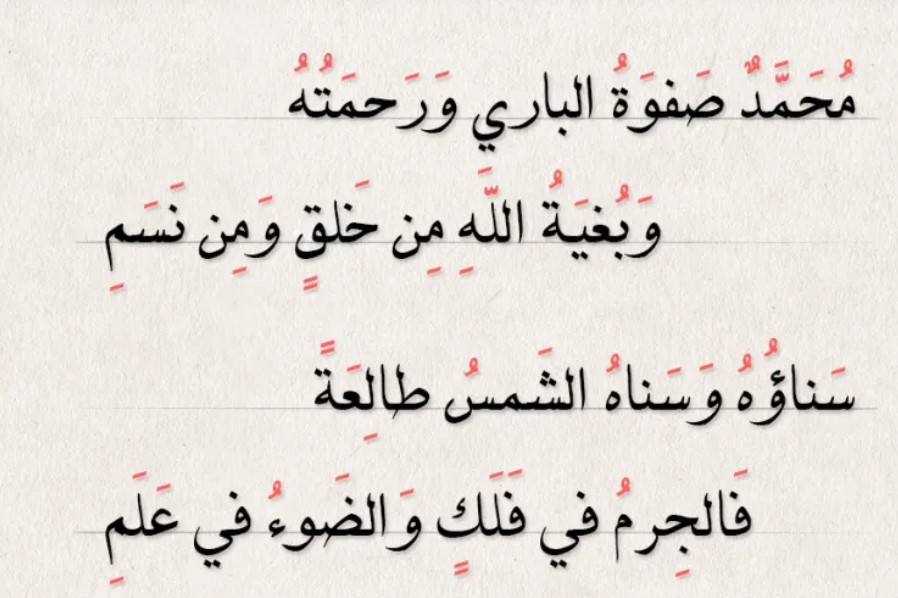 مُحَمَّدٌ صَفوَةُ الباري وَرَحمَتُهُ
وَبُغيَةُ اللَّهِ مِن خَلقٍ وَمِن نَسَمِ
سَناؤُهُ وَسَناهُ الشَمسُ طالِعَةً
فَالجِرمُ في فَلَكٍ وَالضَوءُ في عَلَمِ